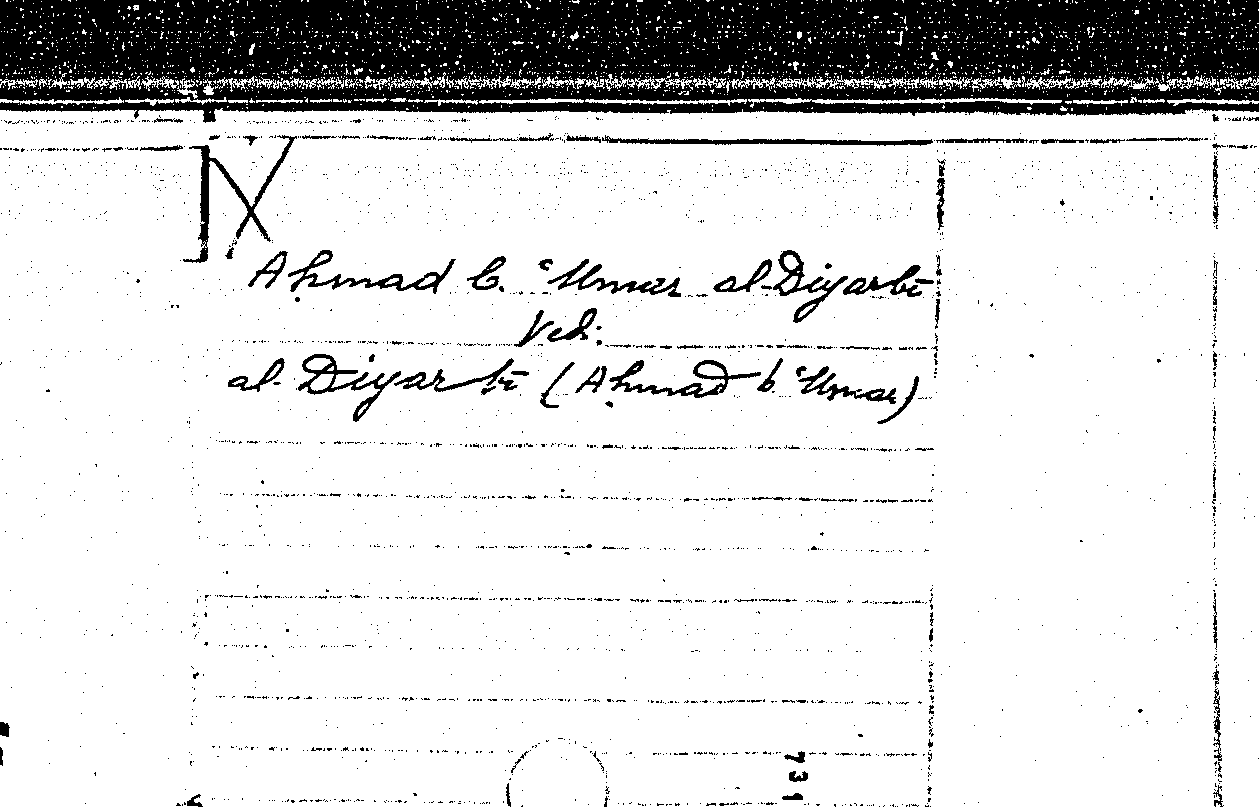 Aḥmad b. ʿUmar al-Diyarbī
Ved:
al-Diyarbī (Aḥmad b. ʿUmar)
731